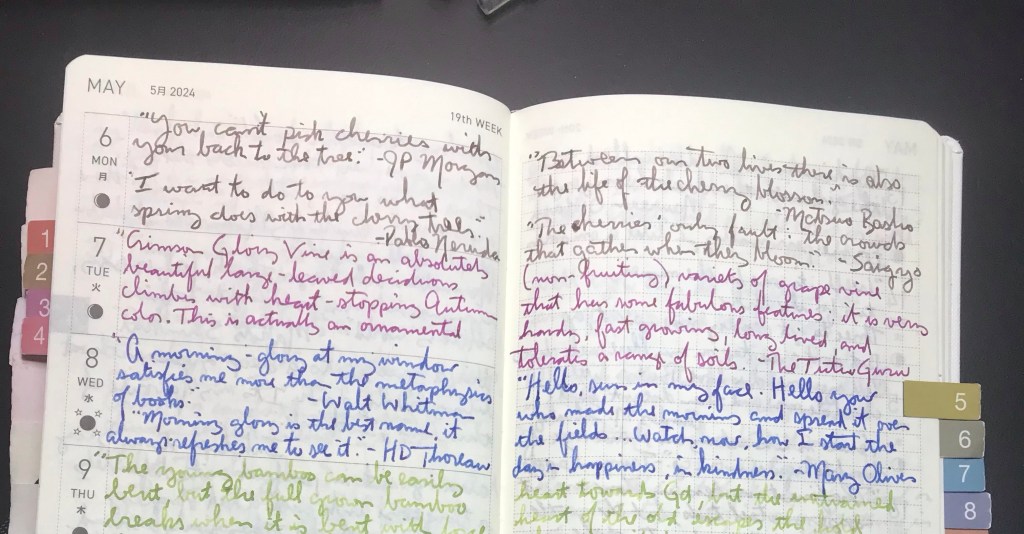 MAY 5月 2024
19th WEEK
6
MON
月
"You can't pick cherries with
your back to the tree." -JP Morgan
"I want to do to you what
spring does with the cherry trees."
-Pablo Neruda
7
TUE
火
"Crimson Glory Vine is an absolutely
beautiful large-leaved deciduous
climber with heart-stopping Autumn
color. This is actually an ornamental
8
WED
水
"A morning-glory at my window
satisfies me more than the metaphysics
of books." -Walt Whitman
"Morning glory is the best name, it
always refreshes me to see it." - HD Thoreau
9
THU
木
"The young bamboo can be easily
bent, but the full grown bamboo
breaks when it is bent with force
"Between our two lives there is also
the life of the cherry blossom."
-Matsuo Basho
"The cherries' only fault: the crowds
that gather when they bloom." - Saigyo
(non-fruiting) variety of grape vine
that has some fabulous features: it is very
hardy, fast growing, long lived and
tolerates a range of soils. -The Tutu Guru
"Hello, sun in my face. Hello you
who made the morning and spread it over
the fields...Watch, now, how I start the
day in happiness, in kindness." -Mary Oliver
heart towards God, but the untrained
heart of the old escapes the
1
2
3
4
5
6
7
8